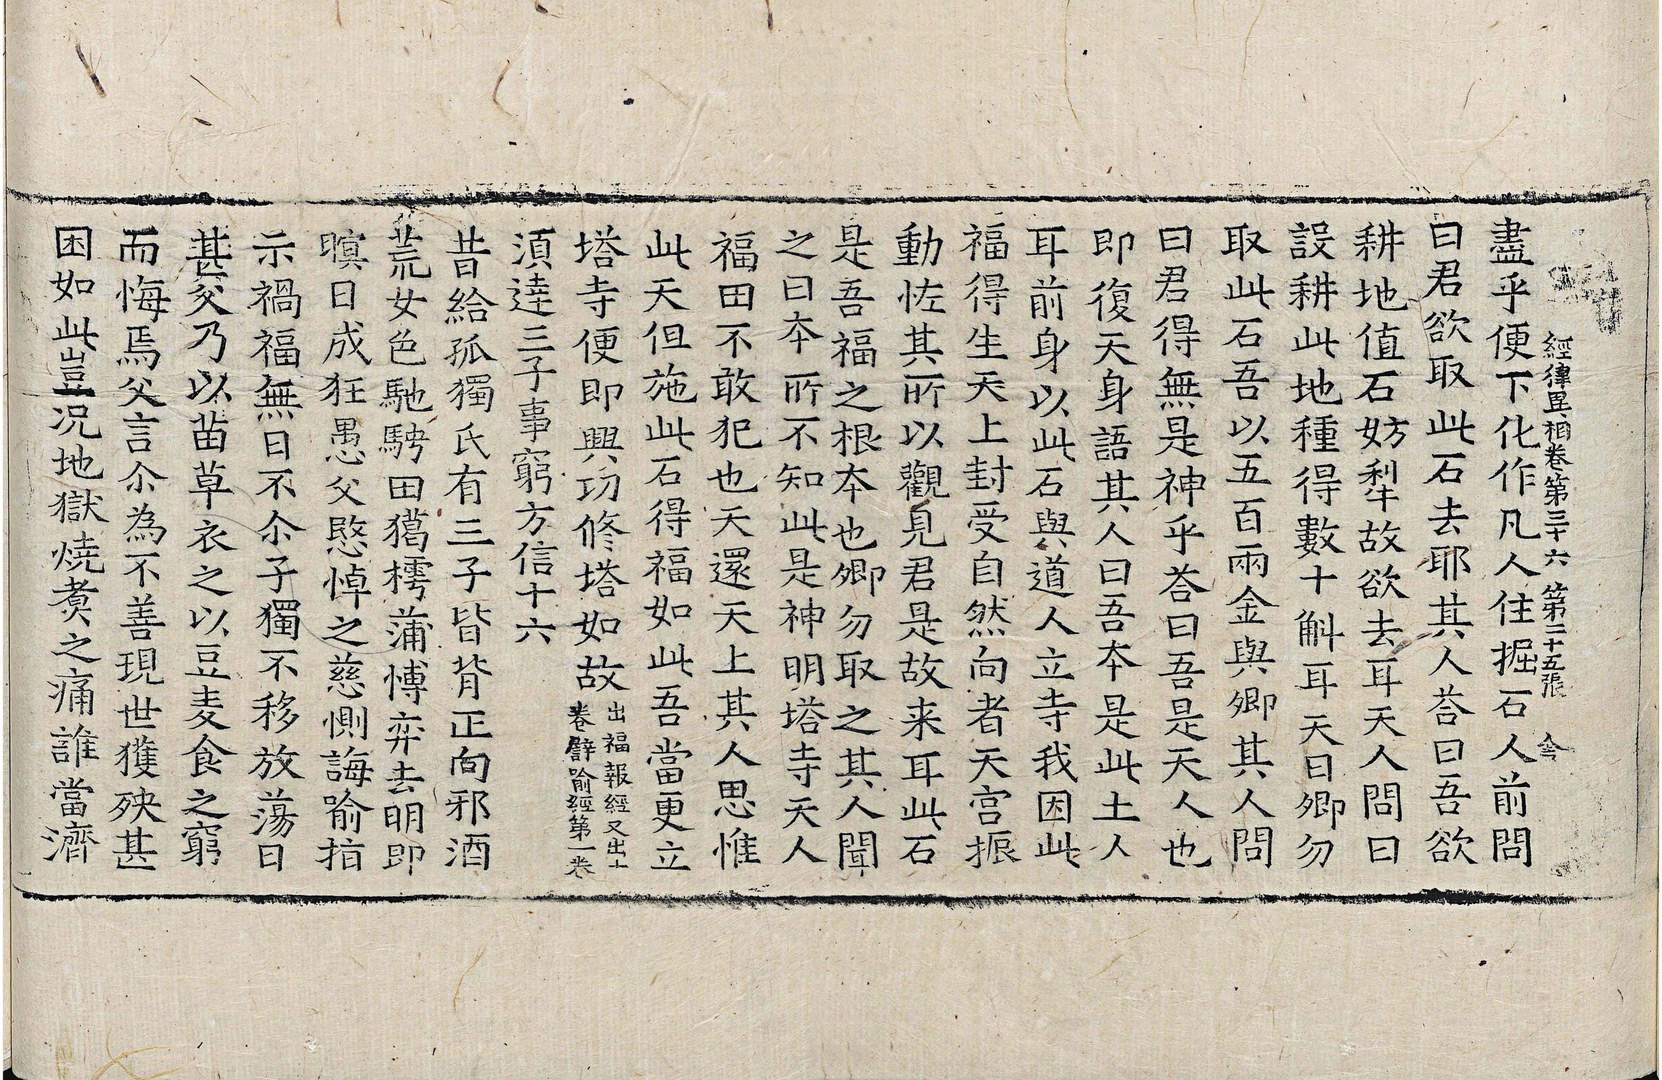 經律異相卷第三十六 第二十五張
盡乎便下化作凡人住掘石人前問
曰君欲取此石去耶其人荅曰吾欲
耕地值石妨犁故欲去耳天人問曰
設耕此地種得數十斛耳天曰卿勿
取此石吾以五百兩金與卿其人問
曰君得無是神乎荅曰吾是天人也
即復天身語其人曰吾本是此土人
耳前身以此石與道人立寺我因此
福得生天上封受自然向者天宫振
動怪其所以觀見君是故来耳此石
是吾福之根本也卿勿取之其人聞
之曰本所不知此是神明塔寺天人
福田不敢犯也天還天上其人思惟
此天但施此石得福如此吾當更立
塔寺便即興功修塔如故出福報經又出十
卷譬喻經第一卷
湏達三子事窮方信十六
昔給孤獨氏有三子皆背正向邪酒
荒女色馳騁田獦樗蒲愽弈去明即
瞑日成狂愚父愍悼之慈惻誨喻指
示禍福無日不尒子獨不移放蕩日
甚父乃以苗草衣之以豆麦食之窮
而悔焉父言尒為不善現世獲殃甚
困如此豈况地獄燒煑之痛誰當濟